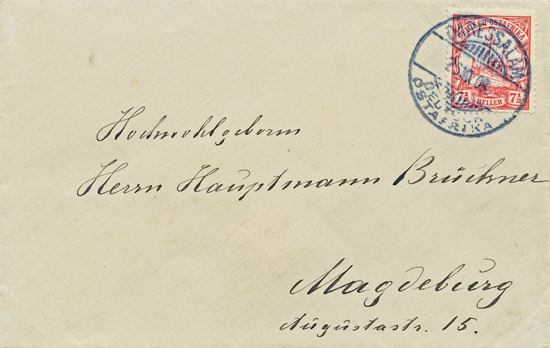 DEUTSCH-OSTAFRIKA
7½ HELLER 7½
DARESSALAM
DEUTSCH-
OSTAFRIKA
Hochwohlgeborn
Herrn Hauptmann Brückner
Magdeburg
Augustastr. 15.